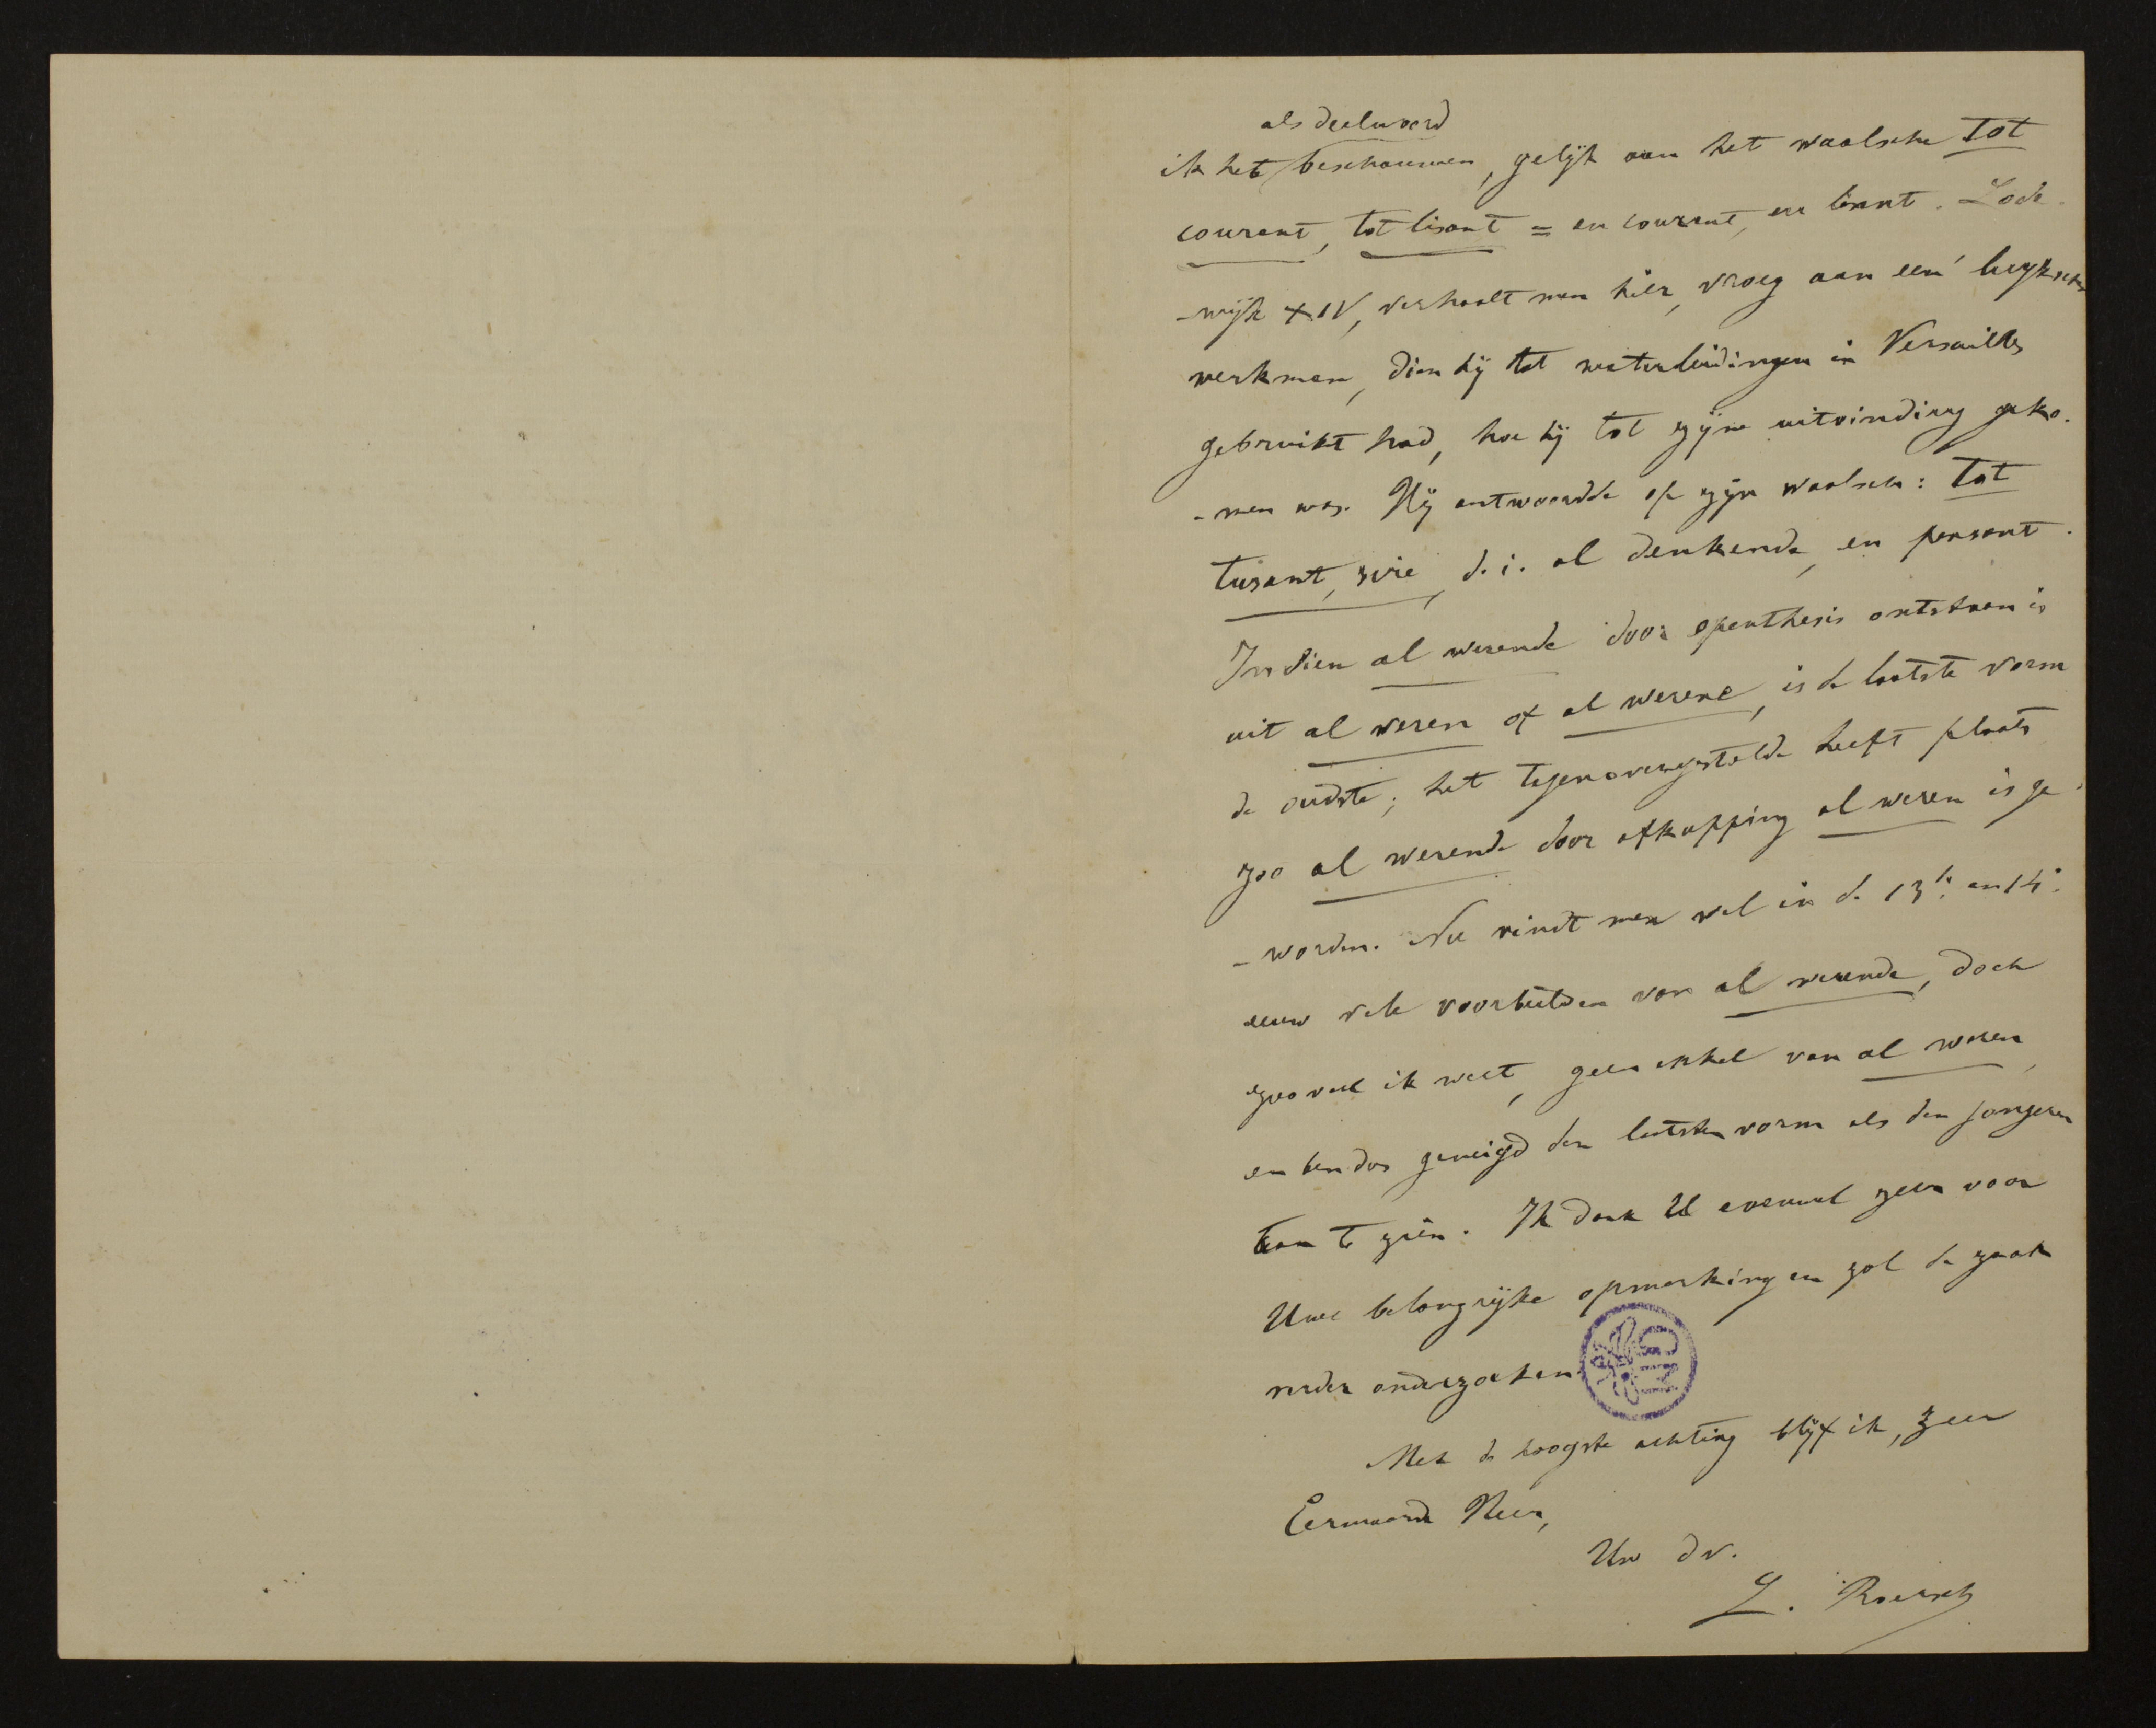 als deelwoord
ik het beschouwen, gelijk aan het waalsche tot
courant, tot lisant = en courant, en lisant. Lode-
-wijk XIV, verhaalt men hier, vroeg aan een' luyksch
werkman, dien hij tot waterleidingen in Versailles
gebruikt had, hoe hij tot zijne uitvinding geko-
-men was. Hij antwoordde op zijn waalsch: Tot
tusant, sire, d. i. al denkende, en pensant.
Indien al wesende door epenthesis ontstaan is
uit al wesen of al wesene, is de laatste vorm
de oudste; het tegenovergestelde heeft plaats
zoo al wesende door afkapping al wesen is ge-
-worden. Nu vindt men wel in de 13e en 14e
eeuw vele voorbeelden van al wesende, doch
zooveel ik weet, geen enkel van al wesen,
en ben dus geneigd den laatsten vorm als den jongeren
aan te zien. Ik dank U evenwel zeer voor
Uwe belangrijke opmerking en zal de zaak
verder onderzoeken.
Met de hoogste achting blijf ik, zeer
Eerwaarde Heer,
Uw dv.
L. Roersch